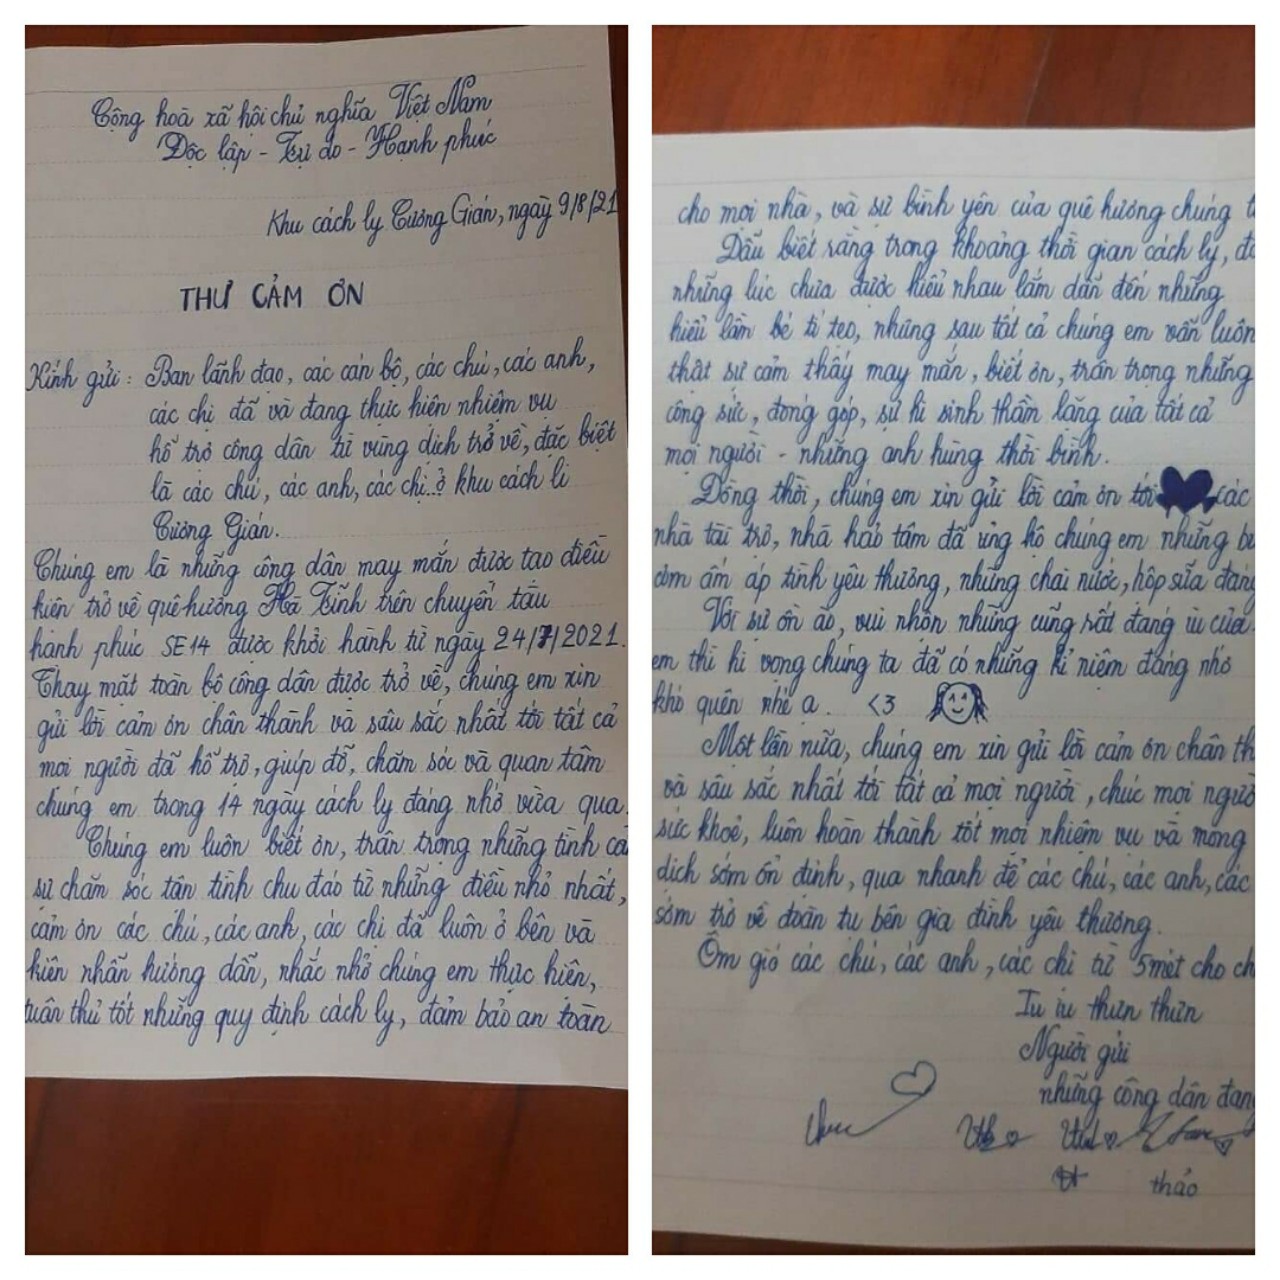 Cộng hoà xã hội chủ nghĩa Việt Nam
Độc lập - Tự do - Hạnh phúc
Khu cách ly Cương Gián, ngày 9/8/21
THƯ CẢM ƠN
Kính gửi: Ban lãnh đạo, các cán bộ, các chú, các anh,
các chị đã và đang thực hiện nhiệm vụ
hỗ trợ công dân từ vùng dịch trở về, đặc biệt
là các chú, các anh, các chị.. ở khu cách li
Cương Gián.
Chúng em là những công dân may mắn được tạo điều
kiện trở về quê hương Hà Tĩnh trên chuyến tàu
hạnh phúc SE14 được khởi hành từ ngày 24/7/2021.
Thay mặt toàn bộ công dân được trở về, chúng em xin
gửi lời cảm ơn chân thành và sâu sắc nhất tới tất cả
mọi người đã hỗ trợ, giúp đỡ, chăm sóc và quan tâm
chúng em trong 14 ngày cách ly đáng nhớ vừa qua.
Chúng em luôn biết ơn, trân trọng những tình
sự chăm sóc tận tình chu đáo từ những điều nhỏ nhất,
cảm ơn các chú, các anh, các chị đã luôn ở bên và
kiên nhẫn hướng dẫn, nhắc nhở chúng em thực hiện,
tuân thủ tốt những quy định cách ly, đảm bảo an toàn
cho mọi nhà, và sự bình yên của quê hương chúng
Dẫu biết rằng trong khoảng thời gian cách ly,
những lúc chưa được hiểu nhau lắm dẫn đến những
hiểu lầm bé tí teo, nhưng sau tất cả chúng em vẫn luôn
thật sự cảm thấy may mắn, biết ơn, trân trọng những
công sức, đóng góp, sự hi sinh thầm lặng của tất cả
mọi người - những anh hùng thời bình.
Đồng thời, chúng em xin gửi lời cảm ơn tới các
nhà tài trợ, nhà hảo tâm đã ủng hộ chúng em những
cơm ấm áp tình yêu thương, những chai nước, hộp sữa đáng
Với sự ồn ào, vui nhộn nhưng cũng rất đáng iu của
em thì hi vọng chúng ta đã có những kỉ niệm đáng nhớ
khó quên nhé ạ. <3
Một lần nữa, chúng em xin gửi lời cảm ơn chân
và sâu sắc nhất tới tất cả mọi người, chúc mọi
sức khoẻ, luôn hoàn thành tốt mọi nhiệm vụ và mong
dịch sớm ổn định, qua nhanh để các chú, các anh, các
sớm trở về đoàn tụ bên gia đình yêu thương.
Ôm gió các chú, các anh, các chị từ 5 mét cho
Iu iu thưn thưn
Người gửi
những công dân đang
thảo